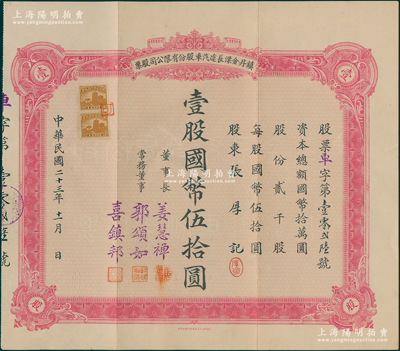 上海陽明拍賣
鎮丹金溧長途汽車股份有限公司股票
股票車字第壹零弍陸號
資本總額國幣拾萬圓
股份貳千股
每股國幣伍拾圓
股東張厚記
壹股國幣伍拾圓
董事長 姜慧禪
常務董事 郭頌如
喜鎮邦
中華民國二十三年十一月 日
車字第壹零弍陸號